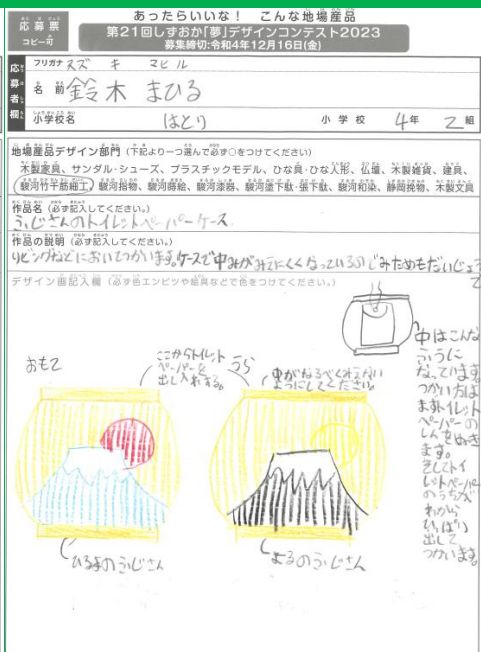 応募票
コピー可
あったらいいな！ こんな地場産品
第21回しずおか「夢」デザインコンテスト2023
募集締切:令和4年12月16日(金)
応募者欄
フリガナ スズキ マヒル
名前 鈴木 まひる
小学校名 はとり 小学校 4年 2組
地場産品デザイン部門 (下記より一つ選んで必ず○をつけてください)
木製家具、サンダル・シューズ、プラスチックモデル、ひな具・ひな人形、仏壇、木製雑貨、建具、
駿河竹千筋細工、駿河指物、駿河蒔絵、駿河漆器、駿河塗下駄・張下駄、駿河和染、静岡挽物、木製文具
作品名 (必ず記入してください。)
ふじさんのトイレットペーパーケース
作品の説明 (必ず記入してください。)
リビングなどにおいてつかいます。ケースで中みがみえにくくなっているのでみためもだいじょう
デザイン画記入欄 (必ず色エンピツや絵具などで色をつけてください。)
おもて
ここからトイレットペーパーを出し入れする。
うら
中がなるべくみえないようにしてください。
中はこんな
ふうに
なっています。
つかい方は
まずトイレット
ペーパーの
しんをぬき
ます。
そしてトイ
レットペーパー
のうちが
わから
ひっぱり
出して
つかいます。
ひるまのふじさん
よるのふじさん